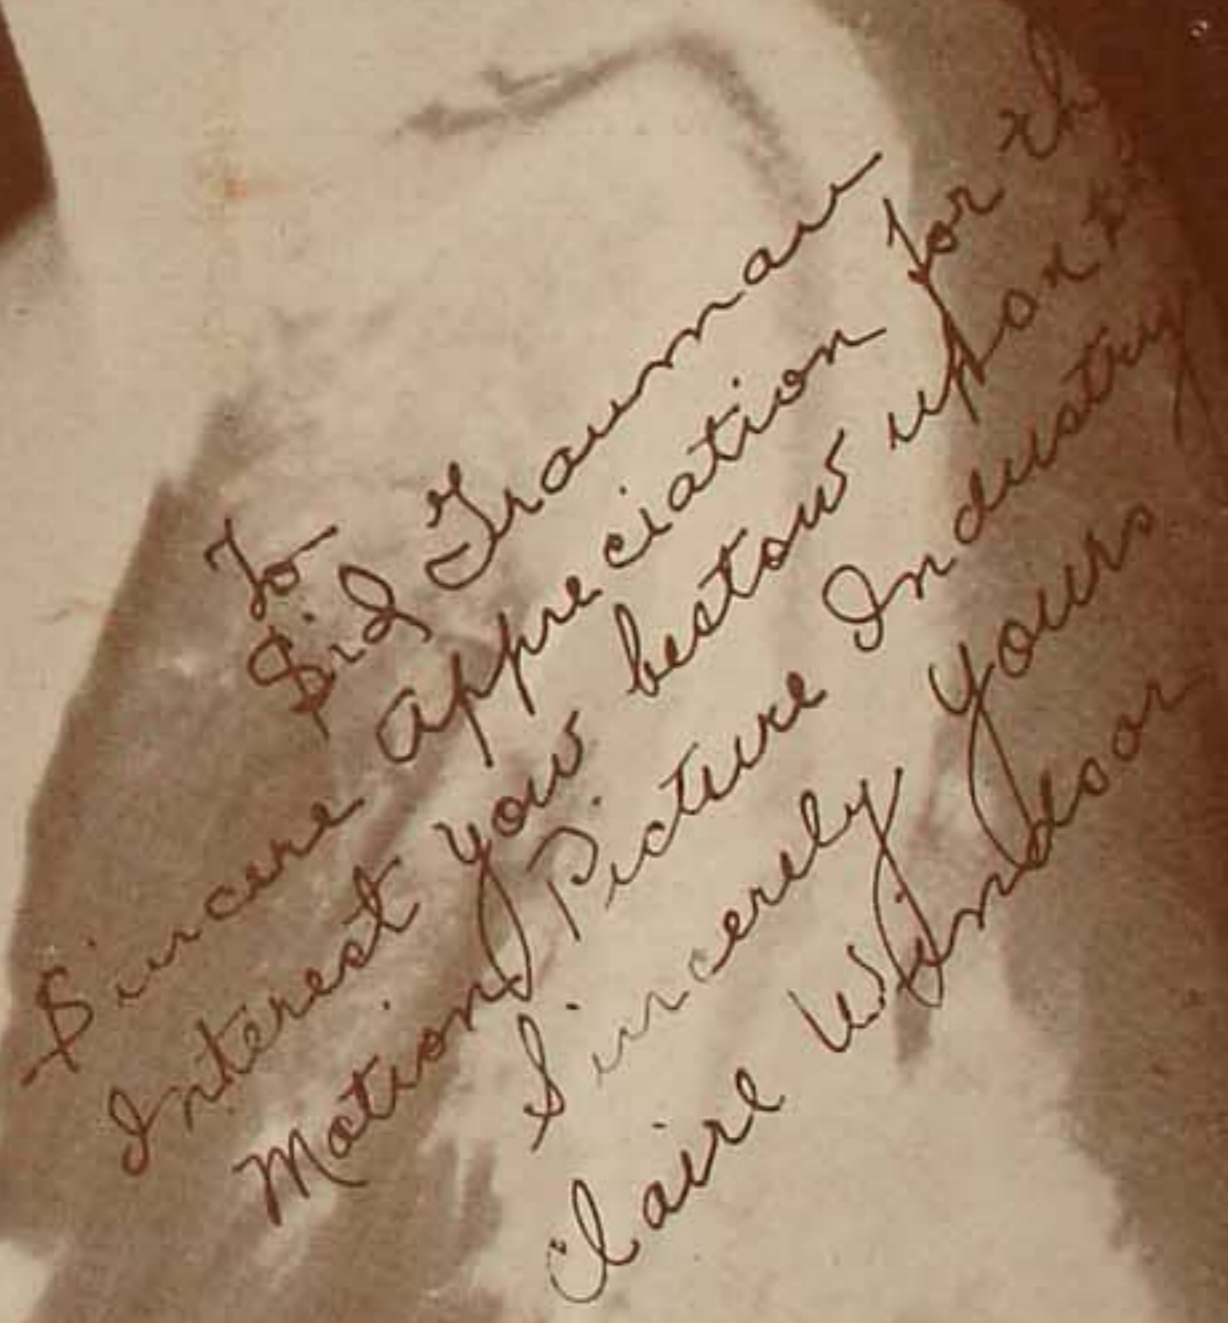 To
Sid Grauman
Sincere appreciation for the
Interest you bestow upon the
Motion Picture Industry
Sincerely Yours
Claire Windsor